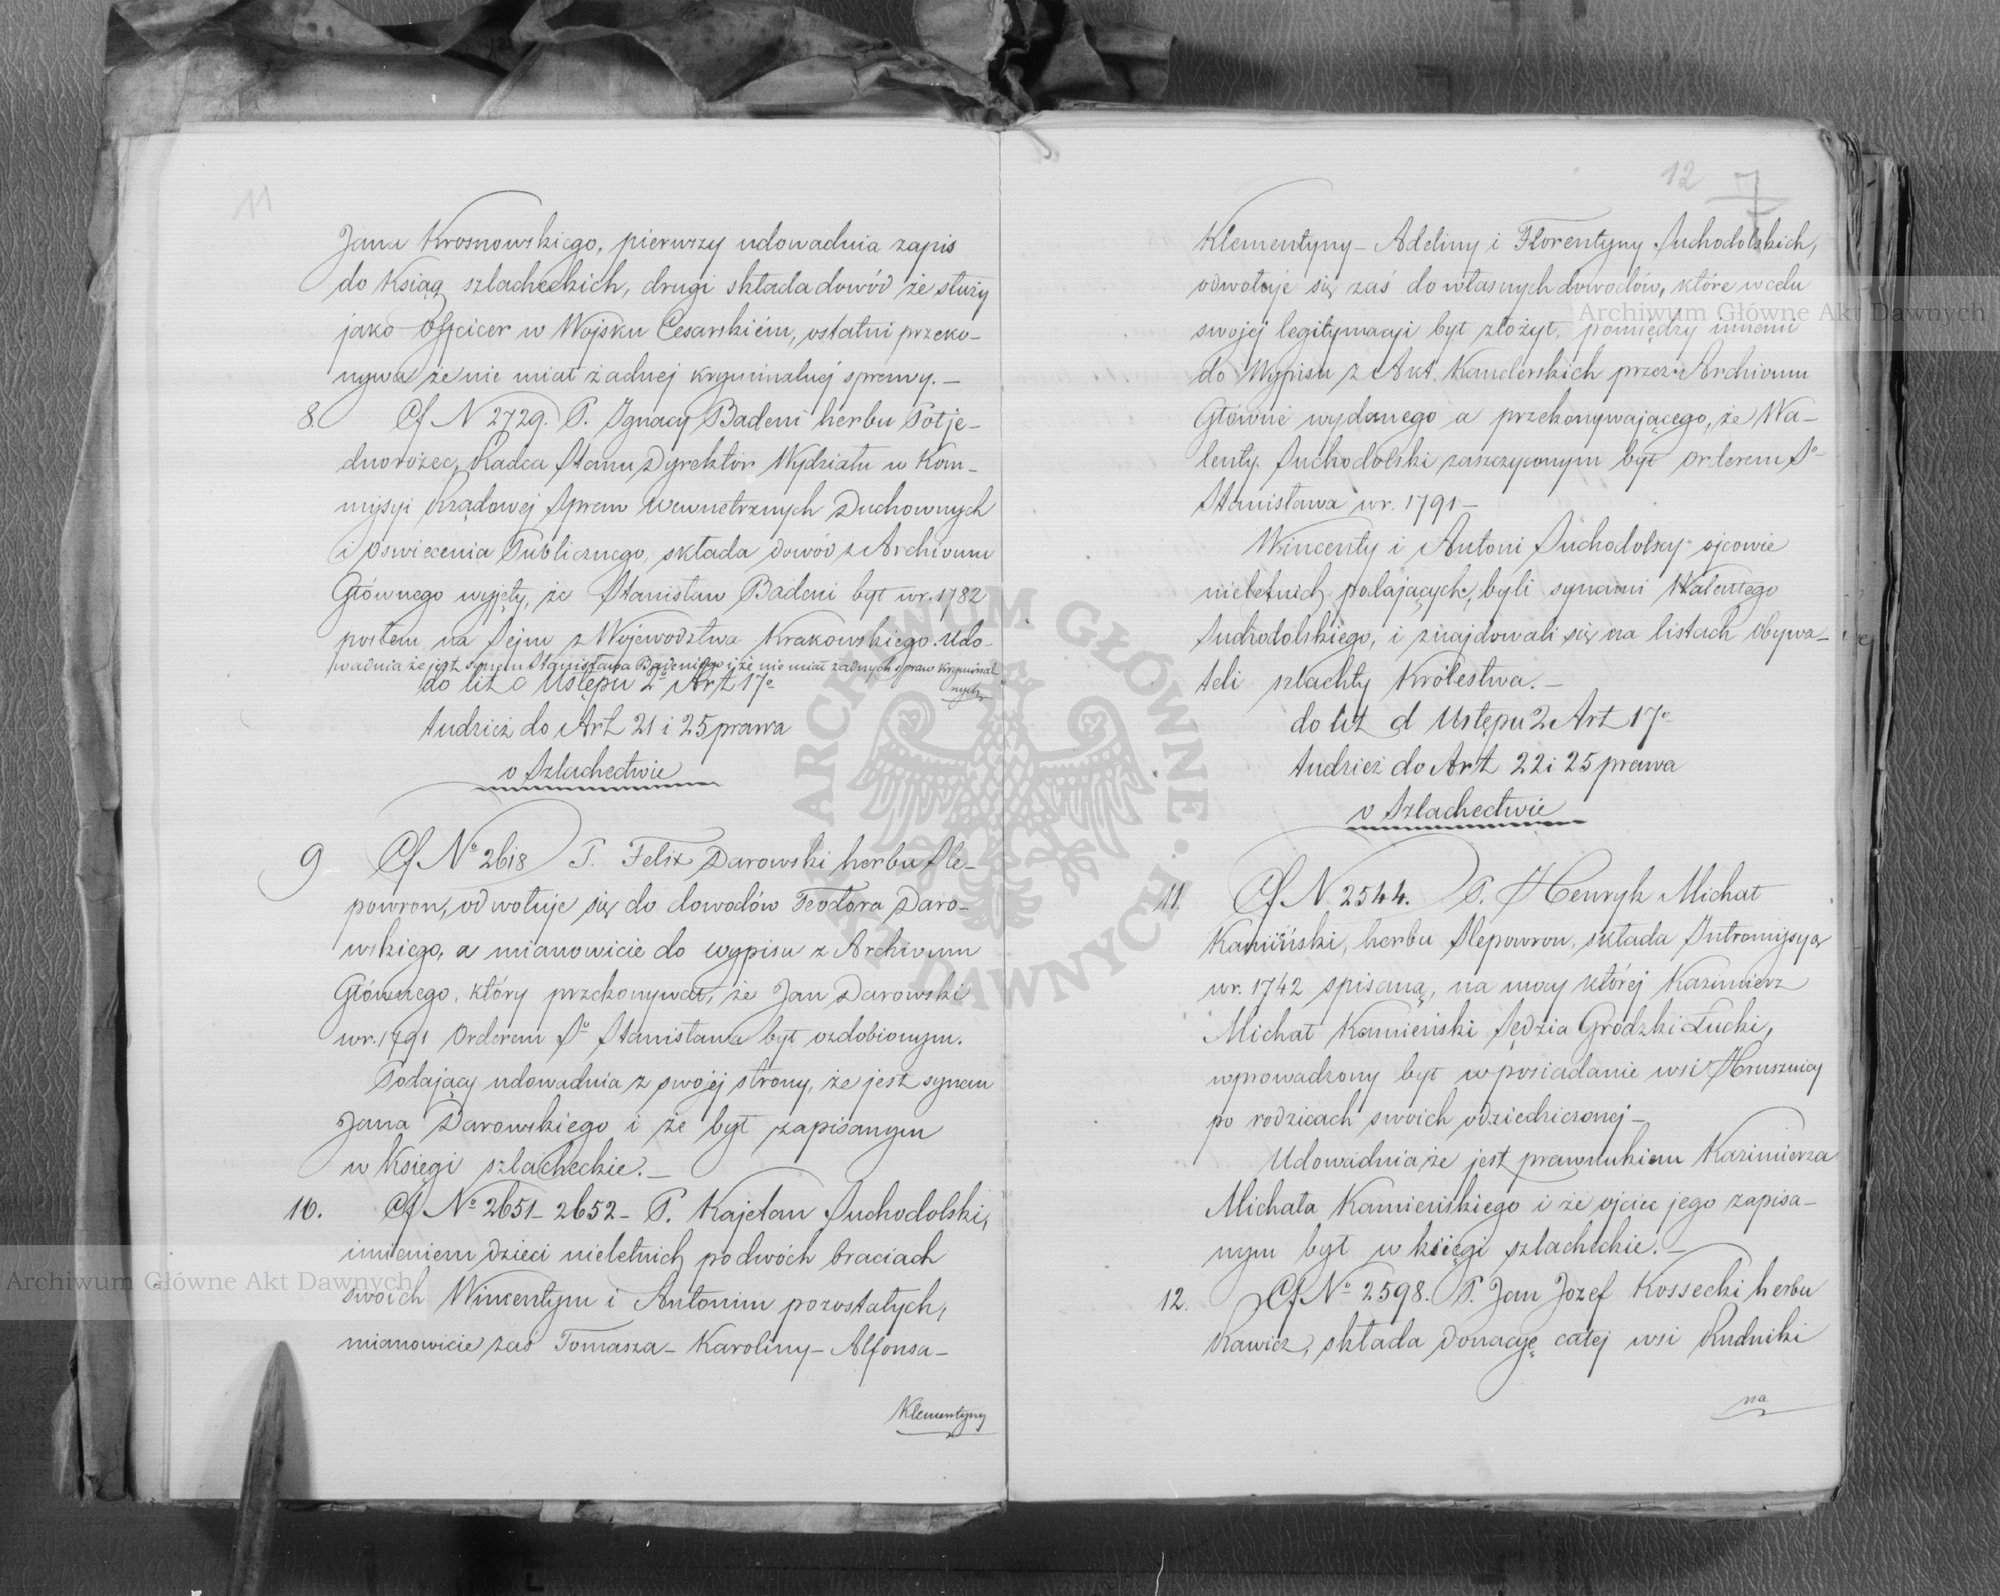 11
Jana Krosnowskiego, pierwszy udowadnia zapis
do Ksiąg szlacheckich, drugi składa dowód że służy
jako Officer w Wojsku Cesarskiém, ostatni przeko-
nywa że nie miał żadnej kryminalnej sprawy. —
8. Cf N 2729. P. Ignacy Badeni herbu Półje-
dnorożec, Radca Stanu Dyrektor Wydziału w Kom-
mysyi Rządowej Spraw Wewnetrznych Duchownych
i Oswiecenia Publicznego, składa dowód z Archivum
Głównego wyjęty, że Stanisław Badeni był w r. 1782
posłem na Sejm z Województwa Krakowskiego. Udo-
wadnia że jest synem Stanisława Badeniego i że nie miał żadnych spraw kryminal
nych
do lit c Ustępu 2o Art 17o
tudzież do Art 21 i 25 prawa
o Szlachectwie
9 Cf No 2618 P. Felix Darowski herbu Sle-
powron, odwołuje się do dowodów Teodora Daro-
wskiego, a mianowicie do wypisu z Archivum
Głównego, który przekonywał, że Jan Darowski
w r. 1791 Orderem So Stanisława był ozdobionym.
Podający udowadnia z swojej strony, że jest synem
Jana Darowskiego i że był zapisanym
w Księgi szlacheckie. —
10. Cf No 2651 - 2652 - P. Kajetan Suchodolski,
imieniem dzieci nieletnich po dwóch braciach
swoich Wincentym i Antonim pozostałych,
mianowicie zas Tomasza - Karoliny - Alfonsa -
Klementyny
12 7
Klementyny - Adeliny i Florentyny Suchodolskich,
odwołuje się zaś do własnych dowodów, które w celu
swojej legitymacyi był złożył, pomiędzy innemi
do Wypisu z Akt. Kanclerskich przez Archivum
Główne wydanego a przekonywającego, że Wa-
lenty Suchodolski zaszczyconym był orderem So
Stanisława w r. 1791 —
Wincenty i Antoni Suchodolscy ojcowie
nieletnich podających, byli synami Walentego
Suchodolskiego, i znajdowali się na listach obywa-
teli szlachty Królestwa. —
do lit d Ustępu 2 Art 17o
tudzież do Art 22 i 25 prawa
o Szlachectwie
11. Cf N. 2544. P. Henryk Michał
Kamiński, herbu Slepowron, składa Intromissyą
w r. 1742 spisaną, na mocy której Kazimierz
Michał Kamieński Sędzia Grodzki Łucki,
wprowadzony był w posiadanie wsi Hruszwicy
po rodzicach swoich odziedziczonej —
Udowadnia że jest prawnukiem Kazimierza
Michała Kamieńskiego i że ojciec jego zapisa-
nym był w księgi szlacheckie. —
12. Cf No 2598. P. Jan Jozef Kossecki herbu
Rawicz, składa Donacyę całej wsi Rudniki
na
Archiwum Główne Akt Dawnych
Archiwum Główne Akt Dawnych
ARCHIWUM GŁÓWNE AKT DAWNYCH